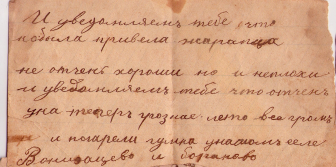 И уведомляем тебе что
кобила привела жарапца
не отчень хороши но и неплохи
и уведомляем тебе что отчен
уна теперь грознае лето все гром
и погарели гумна унашом селе
и боганово